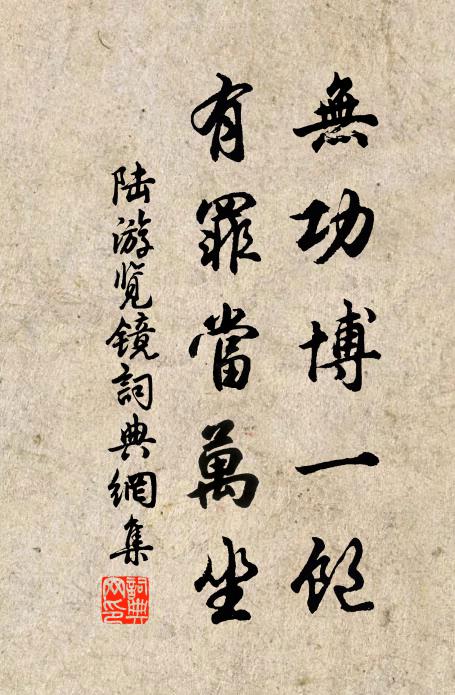 無功博一飽
有罪當萬坐
陆游览镜詞典網集
詞典網印